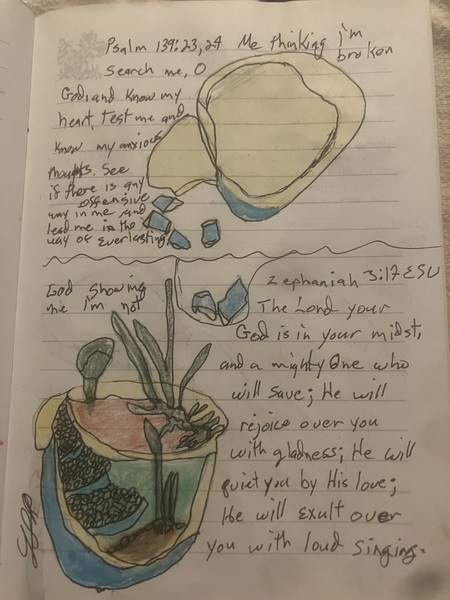 Psalm 139:23,24 Me thinking I'm
broken
Search me, O
God, and know my
heart, test me and
know my anxious
thoughts. See
if there is any
offensive
way in me and
lead me in the
way of everlasting
God showing
me I'm not
Zephaniah 3:17 ESV
The Lord your
God is in your midst,
and a mighty One who
will save; He will
rejoice over you
with gladness; He will
quiet you by His love;
He will exult over
you with loud singing.